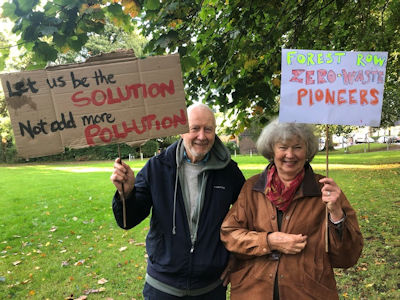 Let us be the
SOLUTION
Not add more
POLLUTION
FOREST ROW
ZERO-WASTE
PIONEERS